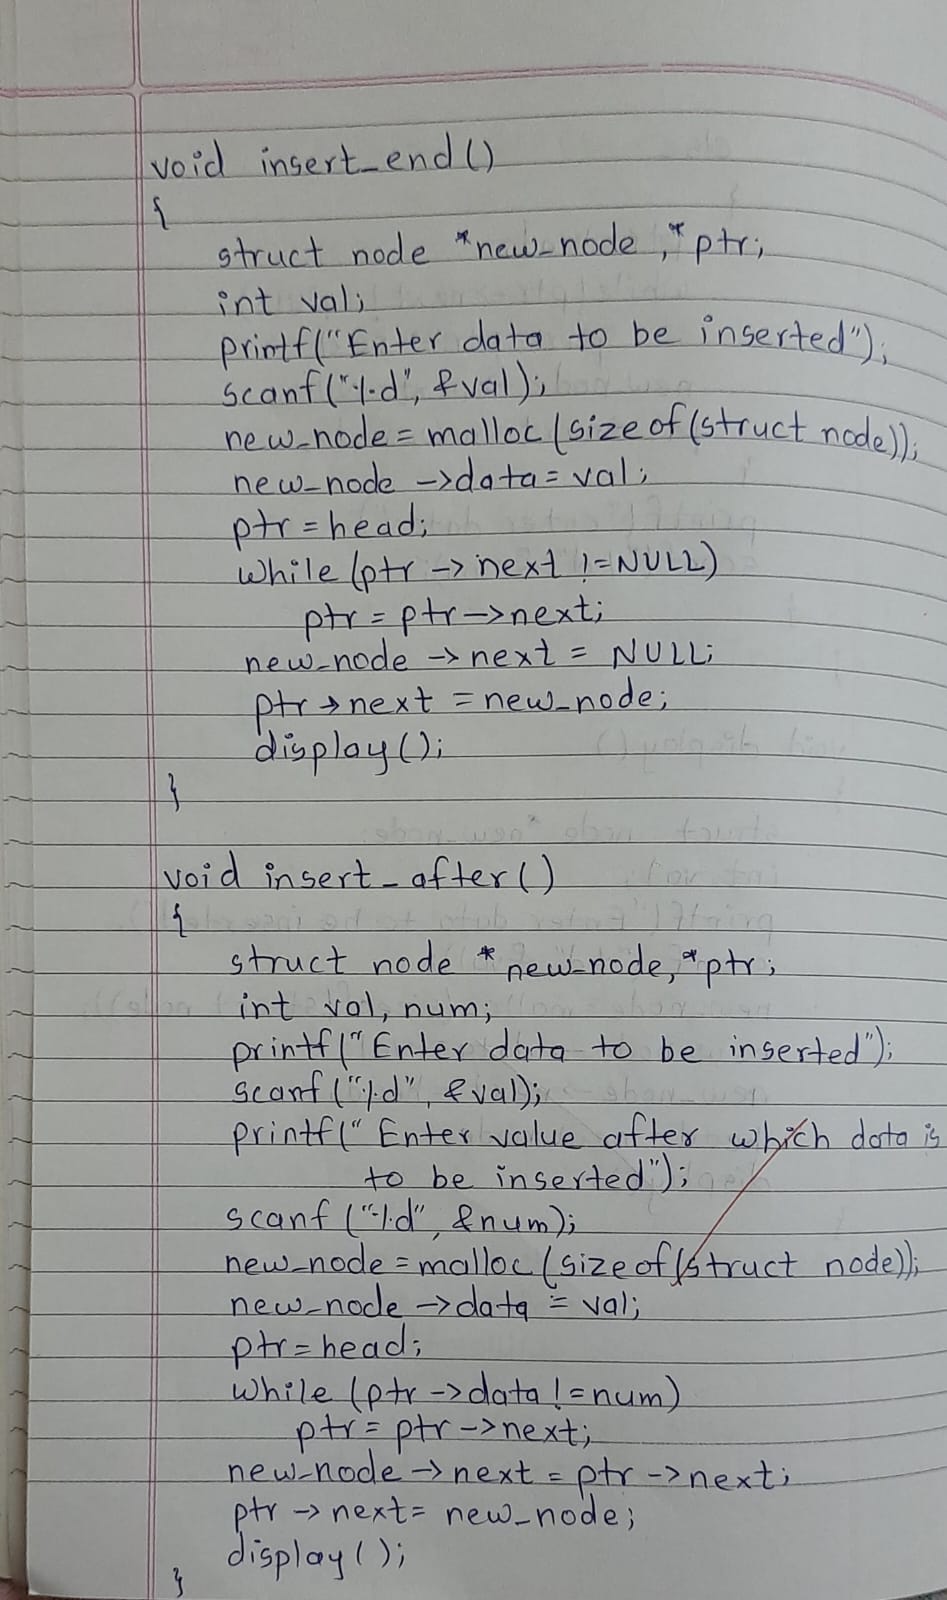 void insert_end()
{
struct node *new_node, *ptr;
int val;
printf("Enter data to be inserted");
scanf("%d", &val);
new_node = malloc(sizeof(struct node));
new_node ->data = val;
ptr = head;
while (ptr -> next != NULL)
ptr = ptr->next;
new_node -> next = NULL;
ptr -> next = new_node;
display();
}
void insert_after()
{
struct node *new_node, *ptr;
int val, num;
printf("Enter data to be inserted");
scanf("%d", &val);
printf("Enter value after which data is
to be inserted");
scanf("%d", &num);
new_node = malloc (sizeof(struct node));
new_node ->data = val;
ptr = head;
while (ptr ->data != num)
ptr = ptr ->next;
new_node -> next = ptr -> next;
ptr -> next = new_node;
display();
}